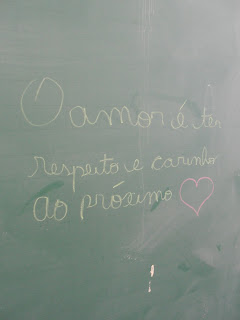 O amor é ter
respeito e carinho
ao próximo
!